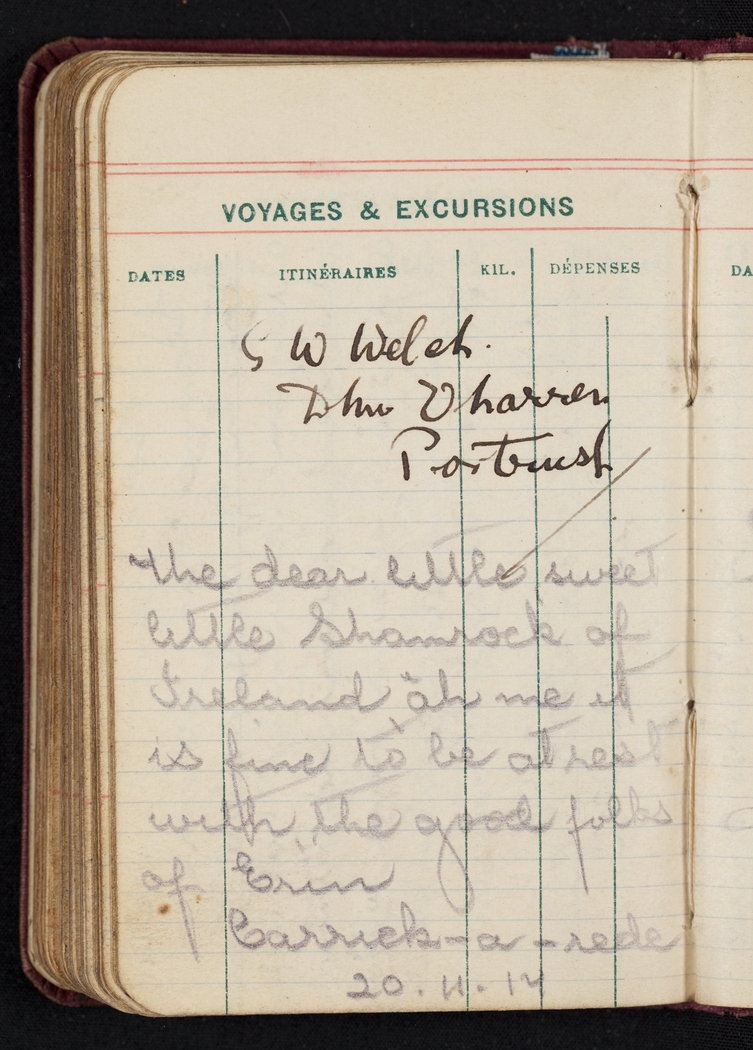 VOYAGES & EXCURSIONS
DATES ITINÉRAIRES KIL. DÉPENSES DA
G W Welch.
Portrush
The dear little sweet
little Shamrock of
Ireland "ah me it
is fine to be at rest
with the good folks
of Erin
Carrick-a-rede
20.11.14